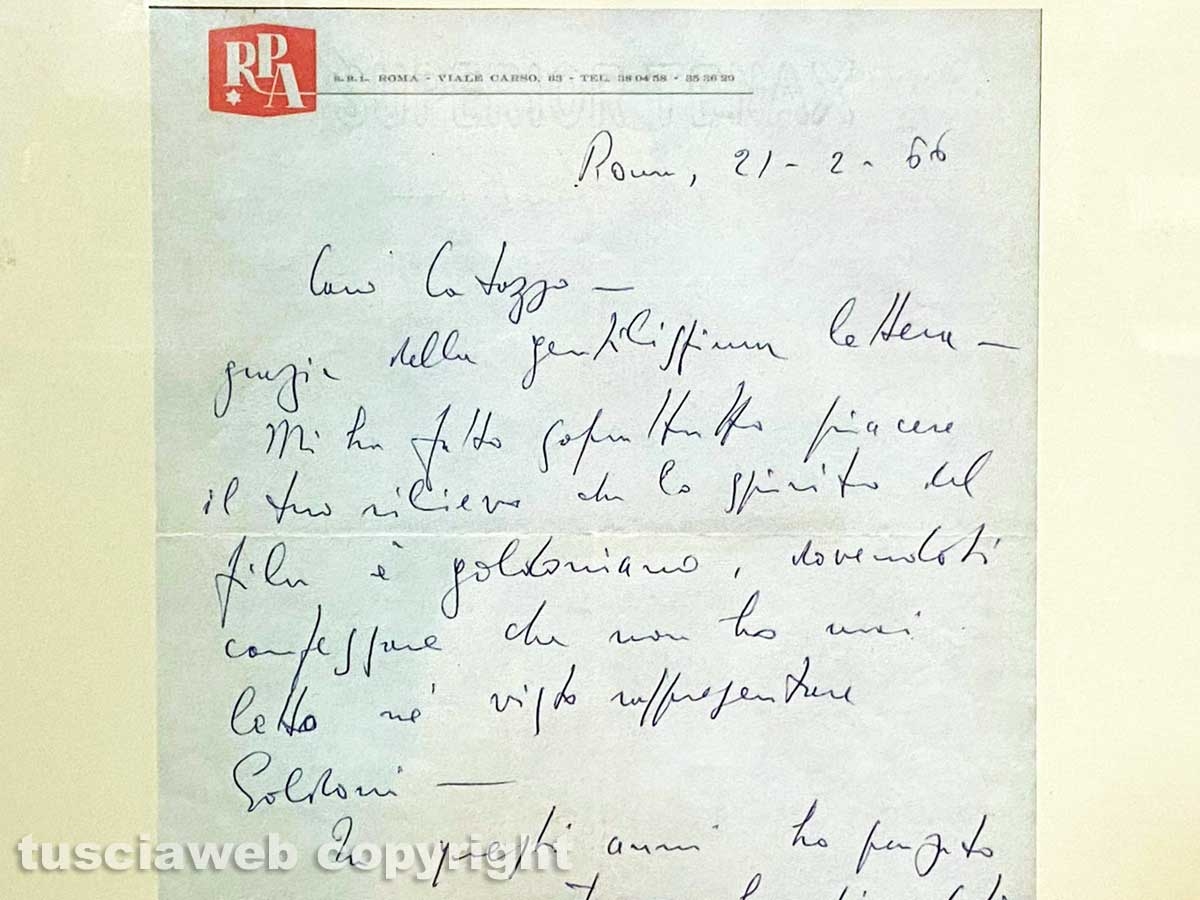 RPA
S.R.L. ROMA - VIALE CARSO, 63 - TEL. 380458 - 353629
Roma, 21-2-66
Caro Catozzo —
grazie della gentilissima lettera —
Mi ha fatto soprattutto piacere
il tuo rilievo che lo spirito del
film è goldoniano, dovendoti
confessare che non ho mai
letto nè visto rappresentare
Goldoni —
In questi anni ho pensato
tusciaweb copyright